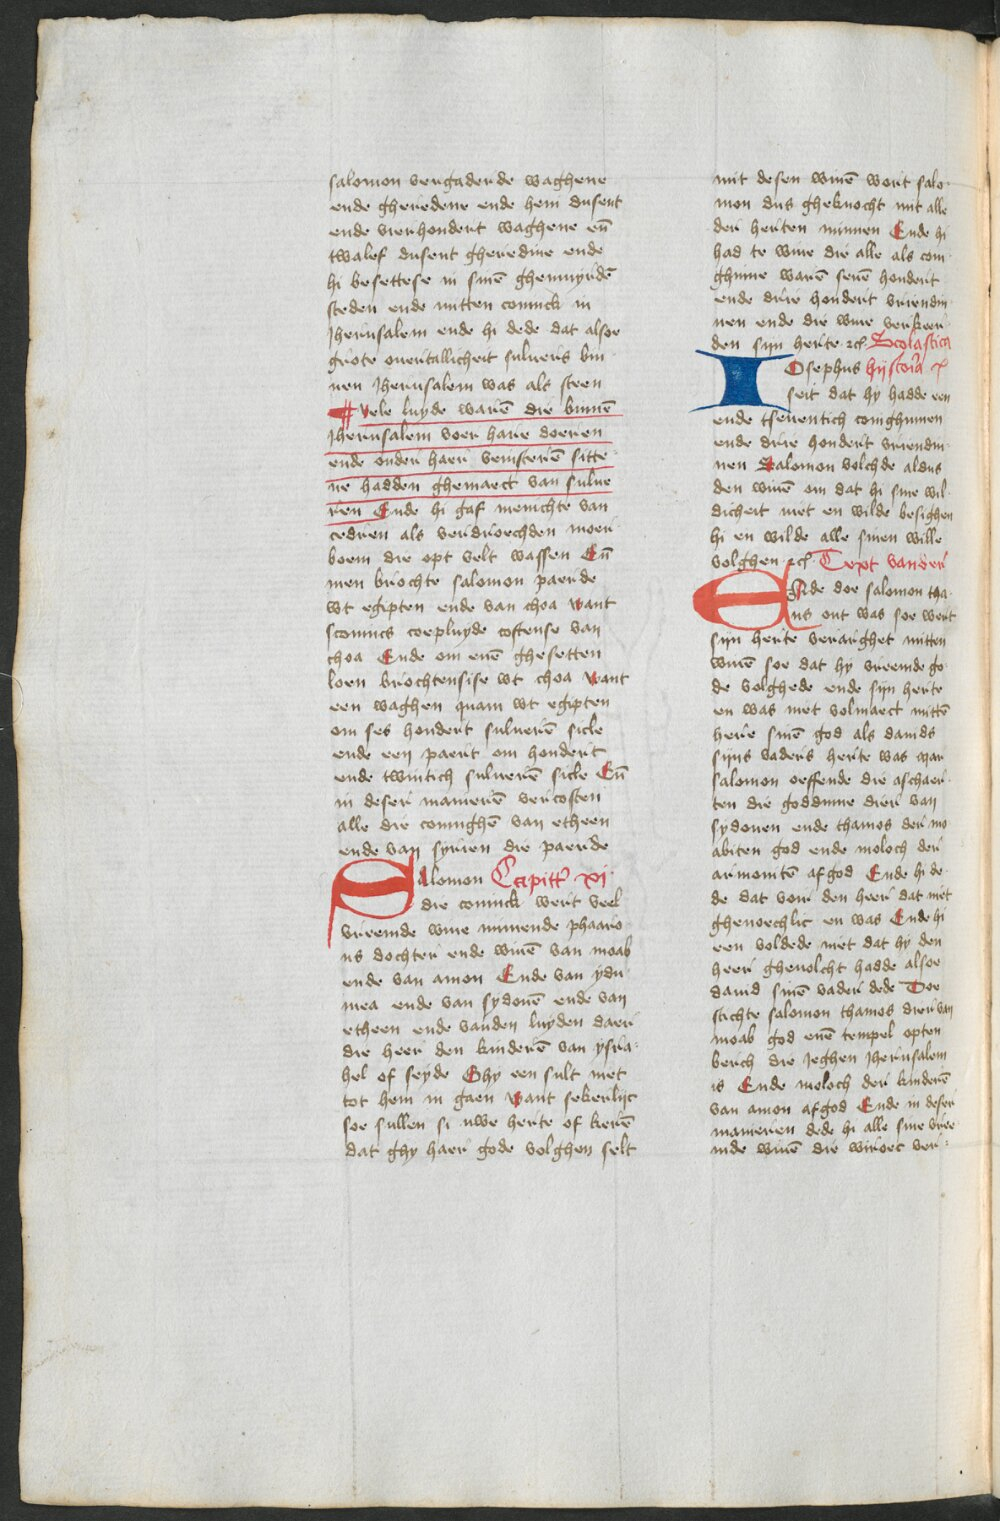 salomon vergaderde waghene
ende gheredene ende hem dusent
ende vierhondert waghene en̄
twalef dusent gheredine ende
hi besettese in sinē ghemuyrdē
steden ende mitten coninck in
Jherusalem ende hi dede dat alsoe
grote overtallicheit sulvers bin
nen Jherusalem was als steen
vele luyde warē die binnē
Jherusalem voer hare doeren
ende onder haer veinsterē sitte
ne hadden ghemaect van sulve
ren Ende hi gaf menichte van
cedren als verdroechden moer
boem die opt velt wassen En̄
men brochte salomon paerde
wt egipten ende van choa want
sconincs coepluyde coftense van
choa Ende om enē ghesetten
loen brochtensise wt choa want
een waghen quam wt egipten
om ses hondert sulverē sicle
ende een paert om hondert
ende twintich sulverē sicle En̄
in deser manierē vercoften
alle die coninghē van etheen
ende van syrien die paerde
Salomon Capittˡ xi
die coninck wert veel
vreemde wive minnende pharao
ns dochter ende wivē van moab
ende van amon Ende van ydu
mea ende van sydonē ende van
etheen ende vanden luyden daer
die heer den kinderē van ysra
hel of seyde Ghy een sult niet
tot hem in gaen want sekerlijc
soe sullen si uwe herte of kerē
dat ghy haer gode volghen selt
mit desen wivē wort salo
mon dus gheknocht mit alle
der herten minnen Ende hi
had te wive die alle als com
ghinne warē sevē hondert
ende drie hondert vriendin
nen ende die wive verkeer
den sijn herte etc̄ Scolastica
IOsephus hijstoria x
seit dat hy hadde een
ende tseventich coninghinnen
ende drie hondert vriendin
nen Salomon volchde aldus
den wivē om dat hi sine wil
dicheit niet en wilde besighen
hi en wilde alle sinen wille
volghen etc̄ Text vander
ENde doe salomon tha
ns out was soe wert
sijn herte verarghet mitten
wivē soe dat hy vreemde go
de volghede ende sijn herte
en was niet volmaect mittē
here sinē god als davids
sijns vaders herte was mar
salomon oeffende die aschaer
ten die goddinne dier van
sydonen ende thamos der mo
abiten god ende moloch der
armonitē afgod Ende hi de
de dat voir den heer dat niet
ghenoechlic en was Ende hi
een voldede niet dat hy den
heer ghevolcht hadde alsoe
david sinē vader dede Doe
stichte salomon thamos dier van
moab god enē tempel opten
berch die jeghen Jherusalem
is Ende moloch der kinderē
van amon afgod Ende in deser
manieren dede hi alle sine vree
mde wivē die wiroec ver